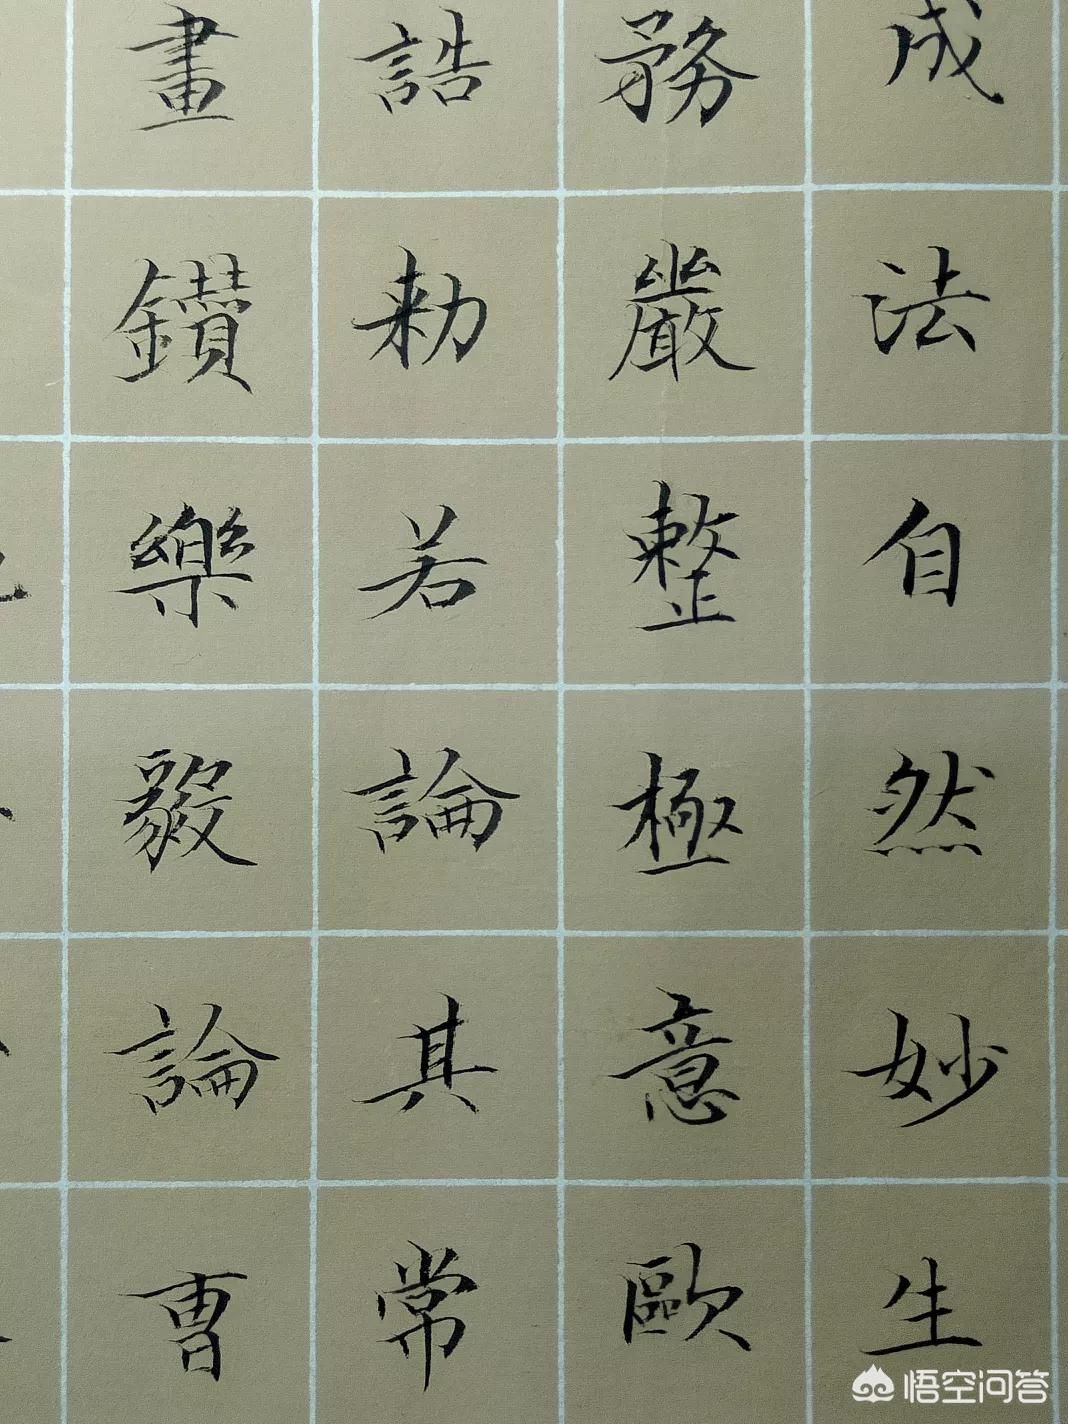 成法自然妙生
務嚴整極意歐
誥勅若論其常
畫鑽樂毅論曹
悟空问答